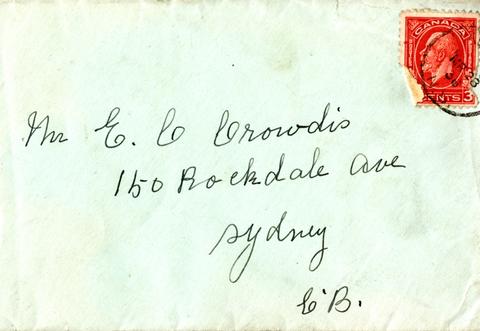 CANADA
CENTS 3
Mr E. C Crowdis
150 Rockdale Ave
Sydney
C.B.